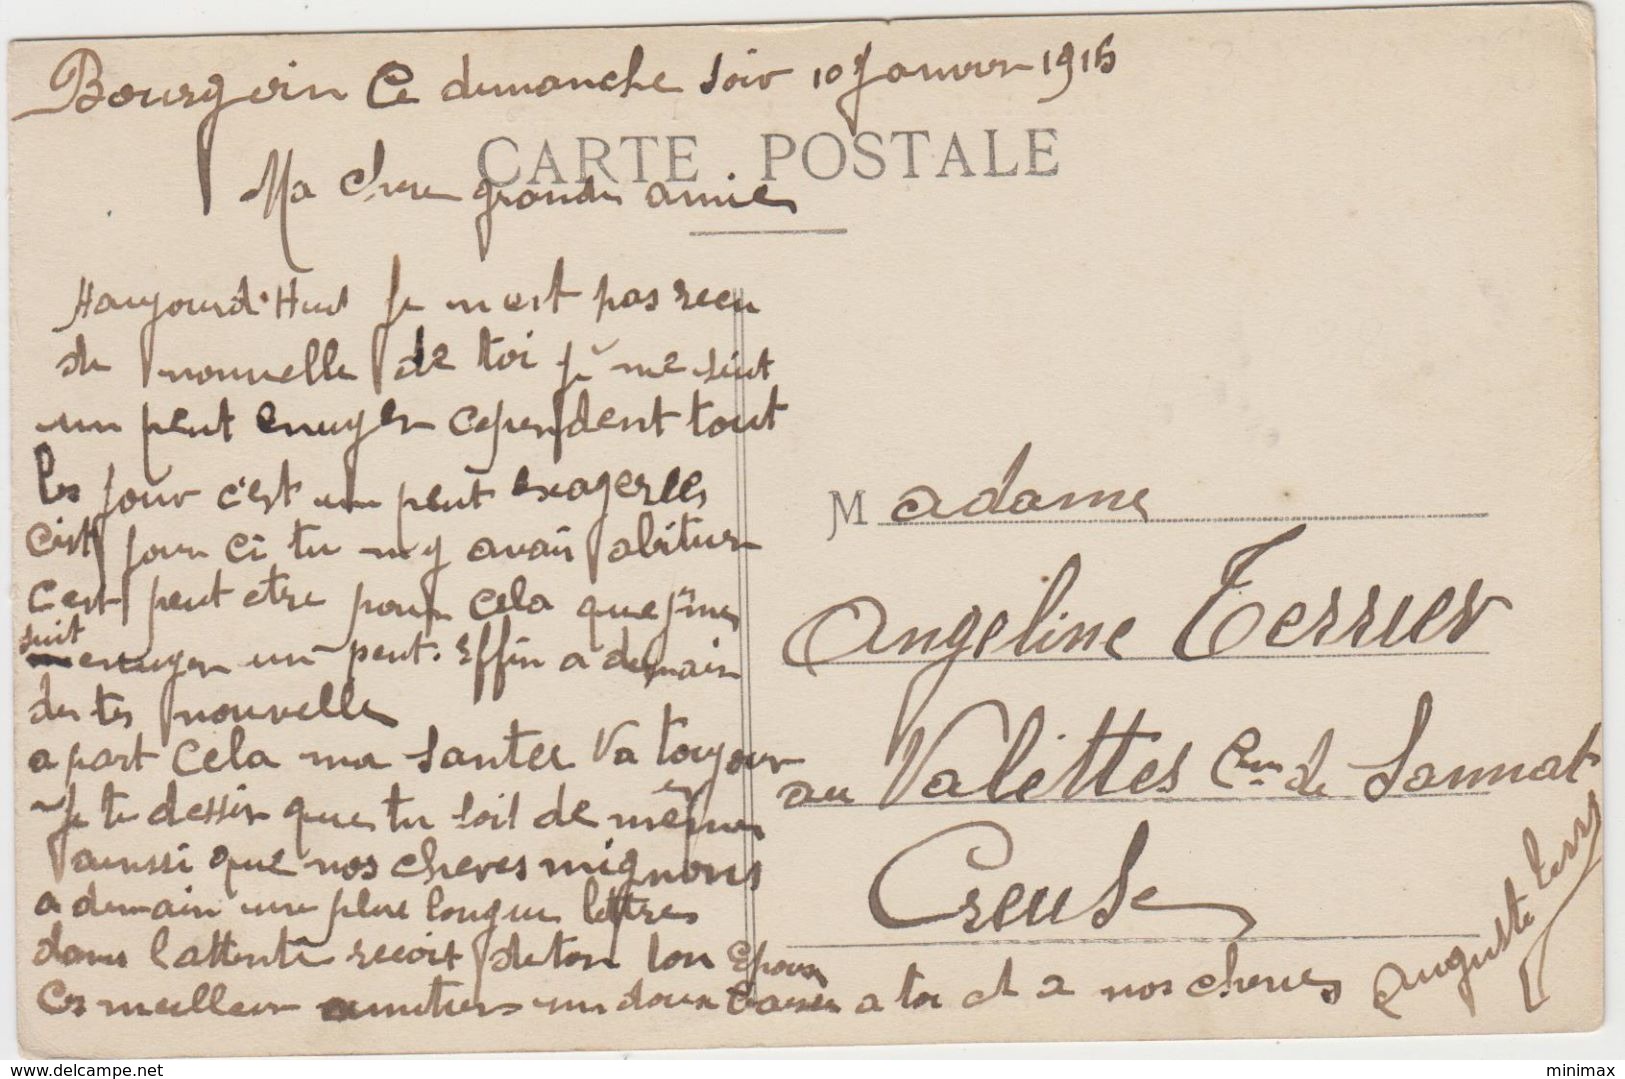 Bourgoin Ce dimanche soir 10 Janvier 1915
CARTE POSTALE
Ma chere grande amie
Haujourd'Hui je n'est pas recu
de nouvelle de toi je me suit
un peut enuyer cependent tout
les jour c'est un peut exagerer
c'est jour ci tu m'y avais abituer
c'est peut etre pour cela que je me
suit
enuyer un peut. Effin a demain
des tes nouvelles
a part cela ma santee va toujour
Je te desire que tu soit de même
aussi que nos cheres mignons
a demain une plus longue lettres
dans l'attente recoit de ton bon Epoux
Ces meilleur amitiers un doux baiser a toi et a nos cheres
Auguste Terrier
Madame
Angeline Terrier
au Valettes Cne de Sannat
Creuse
minimax
www.delcampe.net